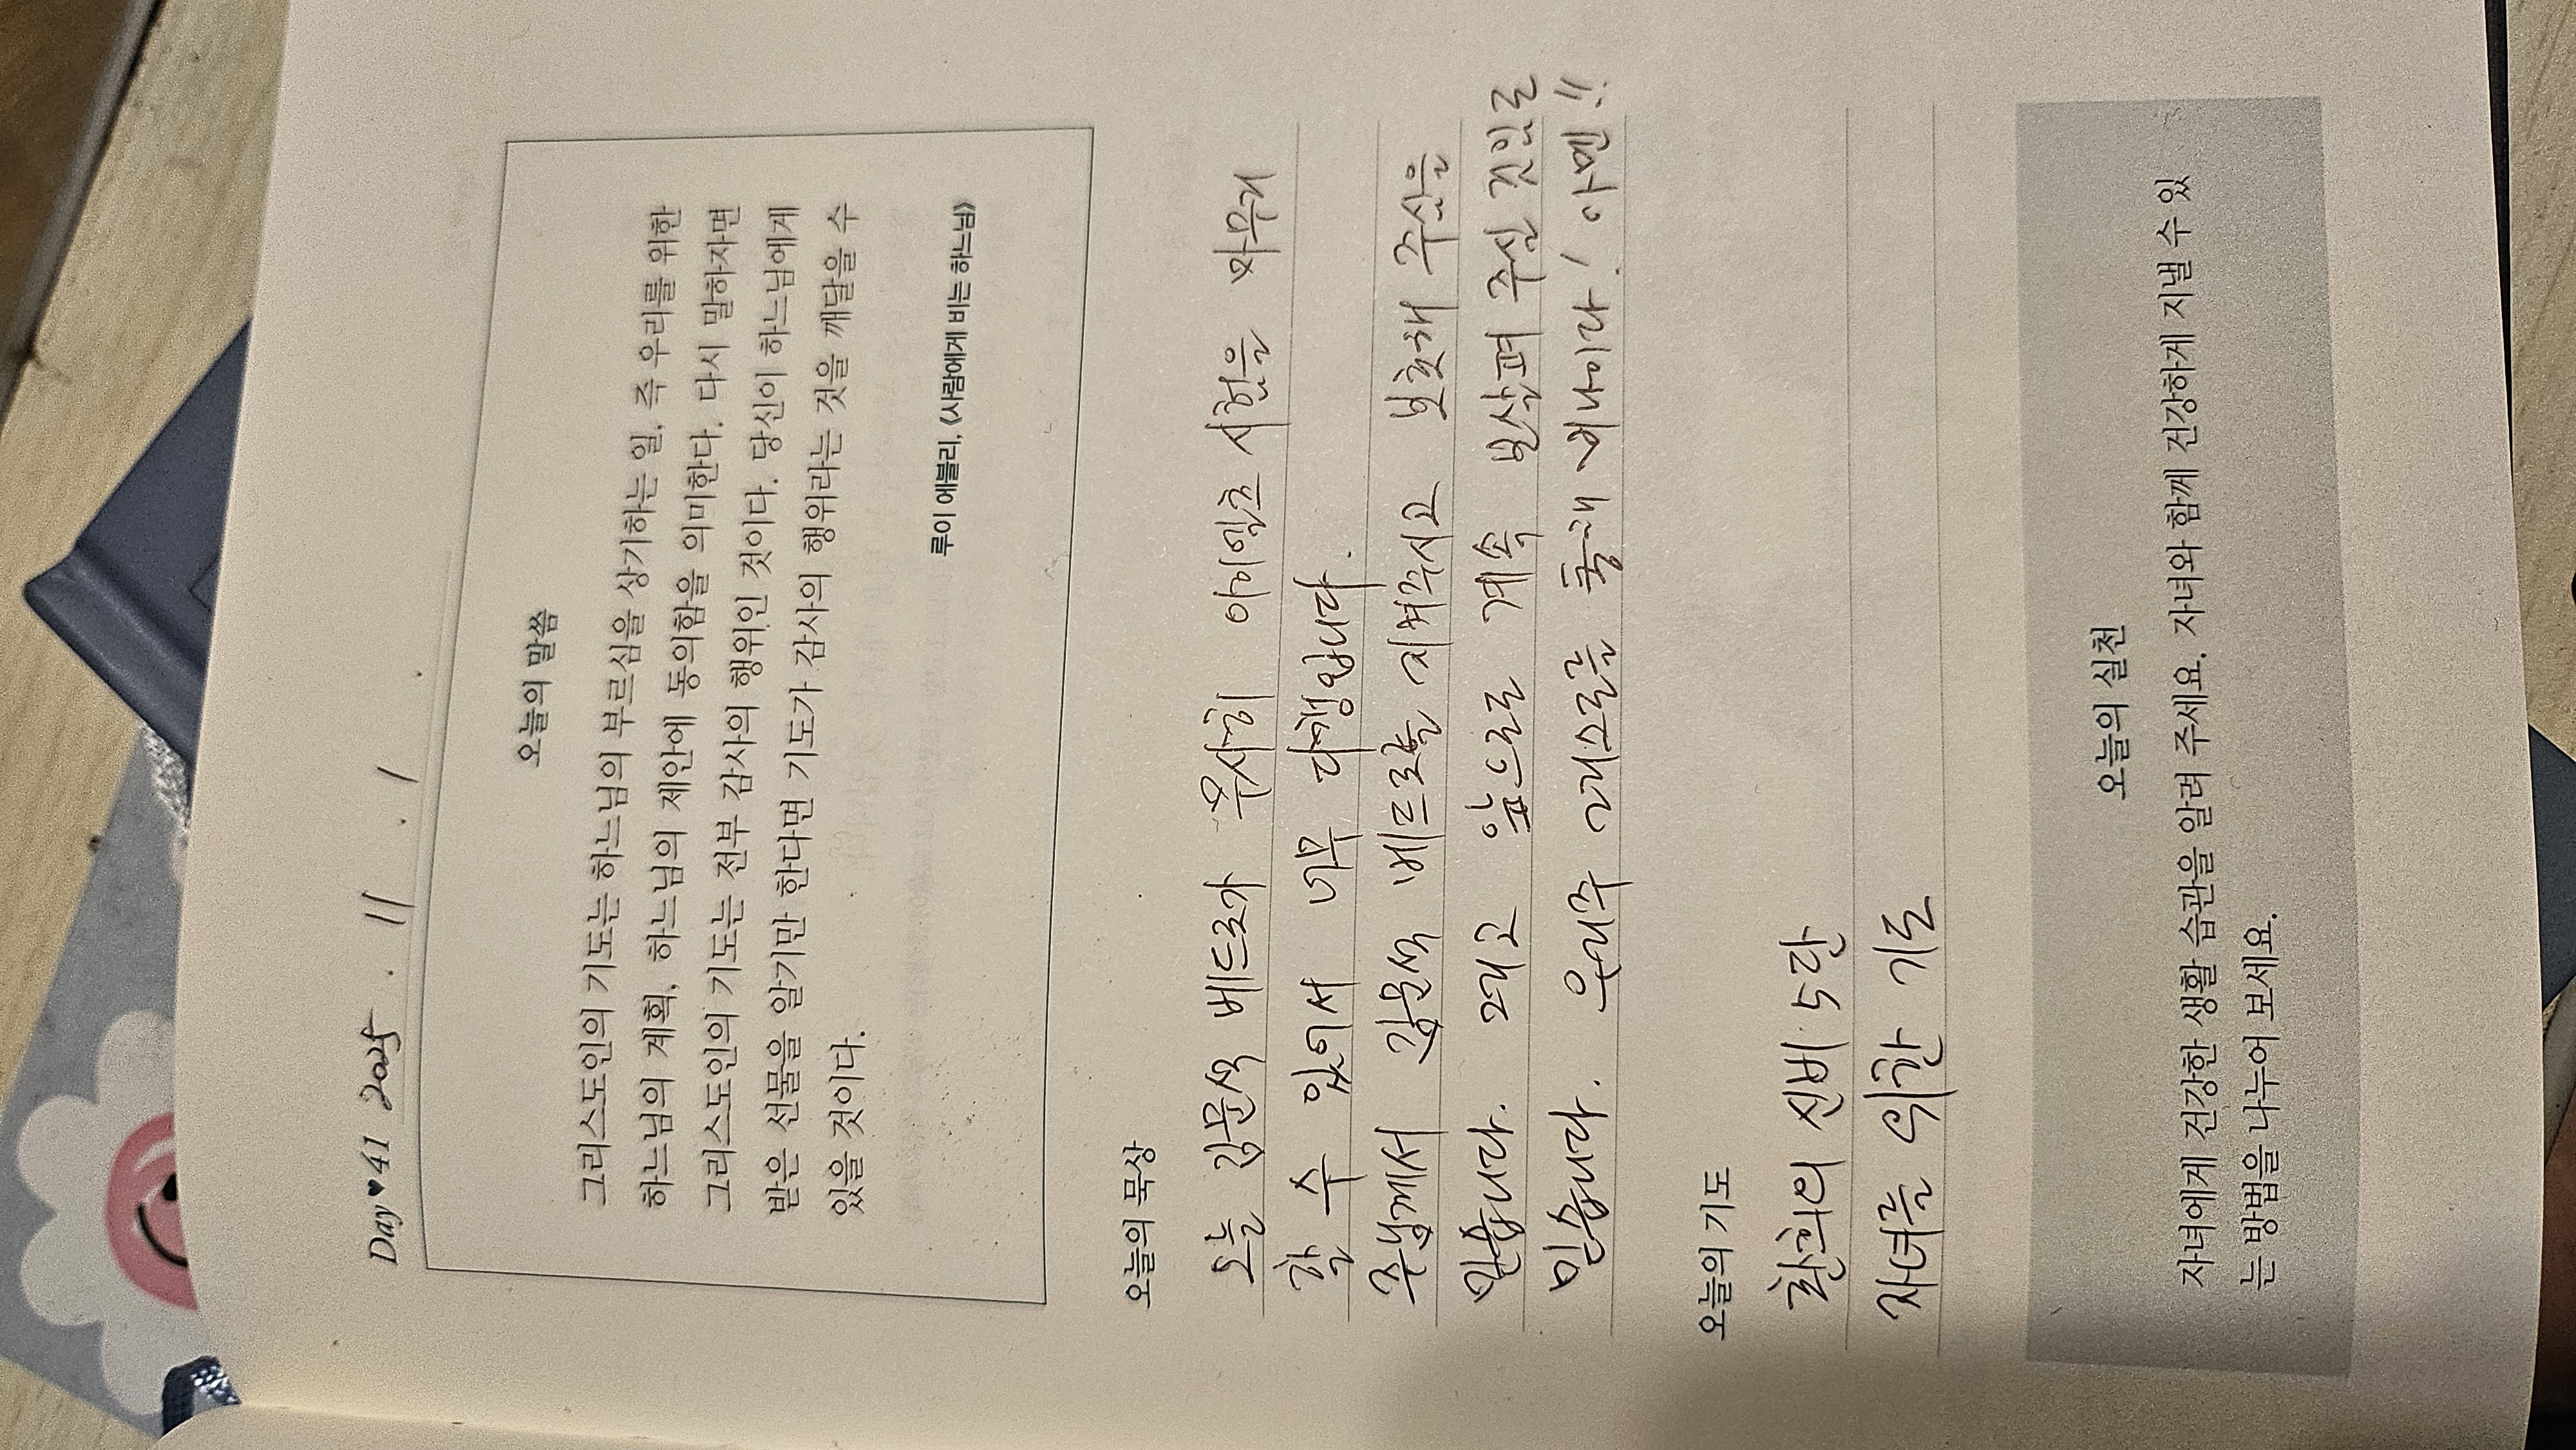 Day♥41 2025 . 11 . 1 .
오늘의 말씀
그리스도인의 기도는 하느님의 부르심을 상기하는 일, 즉 우리를 위한
하느님의 계획, 하느님의 제안에 동의함을 의미한다. 다시 말하자면
그리스도인의 기도는 전부 감사의 행위인 것이다. 당신이 하느님에게
받은 선물을 알기만 한다면 기도가 감사의 행위라는 것을 깨달을 수
있을 것이다.
루이 에블리, 《사람에게 비는 하느님》
오늘의 묵상
오늘 김문석 베드로가 무사히 아이엘츠 시험을 마무리
할 수 있어서 너무 다행입니다.
주님께서 김문석 베드로를 지켜주시고 보호해 주심을
믿습니다. 그리고 앞으로도 계속 보살펴 주실 것임도
믿습니다. 우리주 그리스도를 통해 비나이다! 아멘!!
오늘의 기도
환희의 신비 5단
자녀를 위한 기도
오늘의 실천
자녀에게 건강한 생활 습관을 알려 주세요. 자녀와 함께 건강하게 지낼 수 있
는 방법을 나누어 보세요.